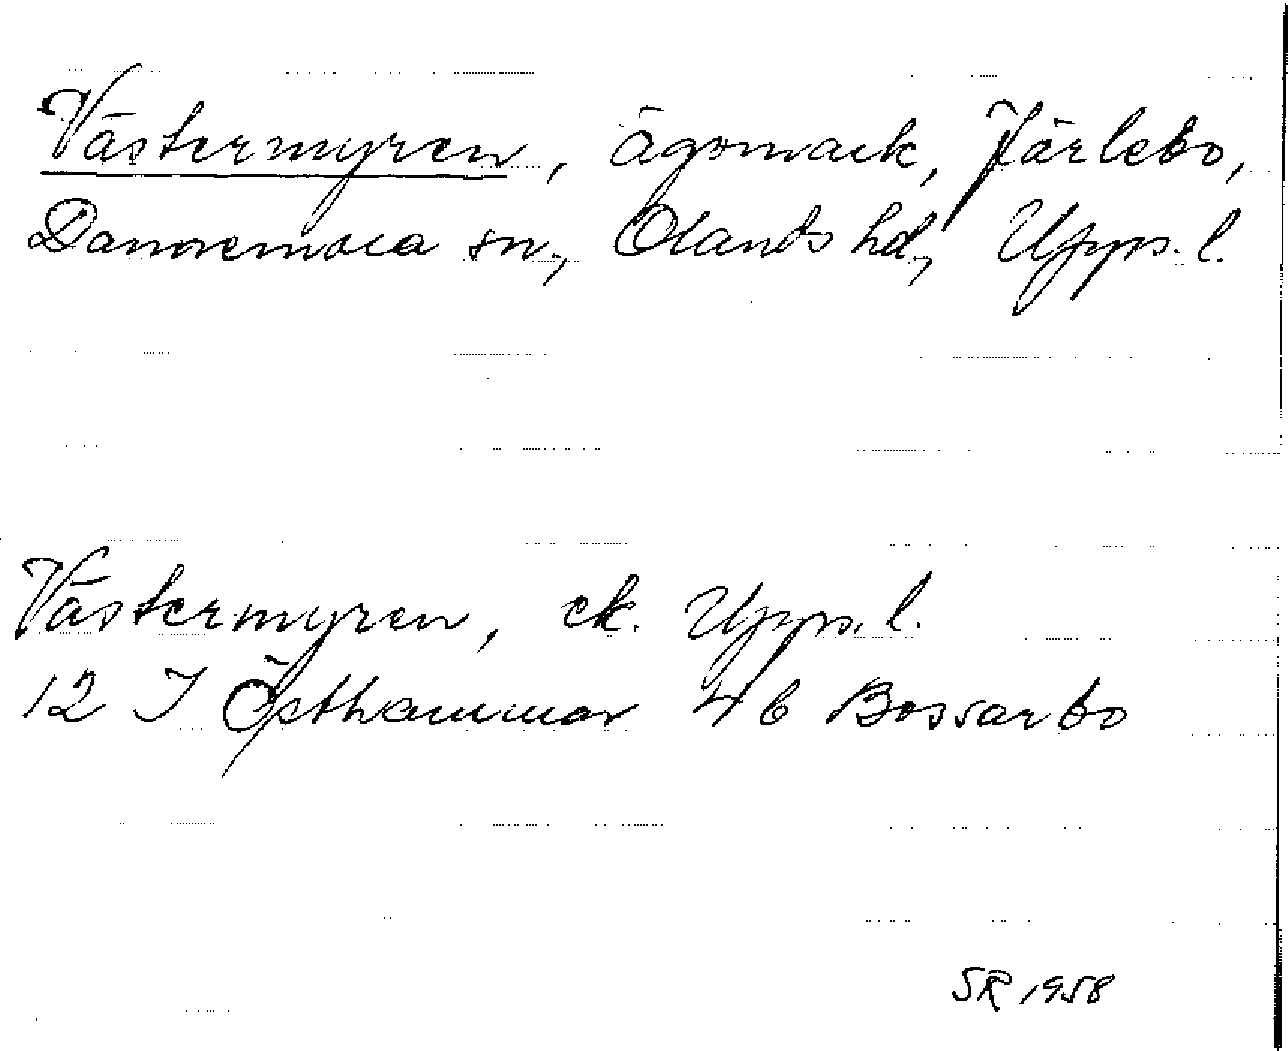 Västermyren, ägomark, Järlebo,
Dannemora sn., Olands hd, Upps. l.
Västermyren, ek. Upps. l.
12 I Östhammar 4b Bossarbo
SR 1958